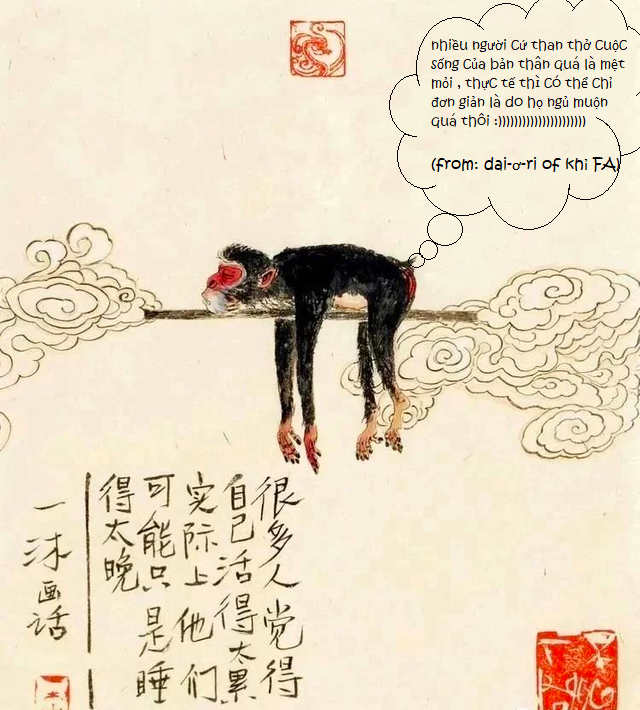 nhiều người Cứ than thở CuộC
sống Của bản thân quá là mệt
mỏi , thựC tế thì CÓ thể Chỉ
đơn giản là do họ ngủ muộn
quá thôi :))))))))))))))))))))))
(from: dai-ơ-ri of khỉ FA)
很多人觉得
自己活得太累
实际上他们
可能只是睡
得太晚
一沐画话